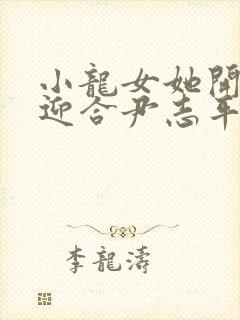 小龍女她開
迎合尹志平
李龍濤